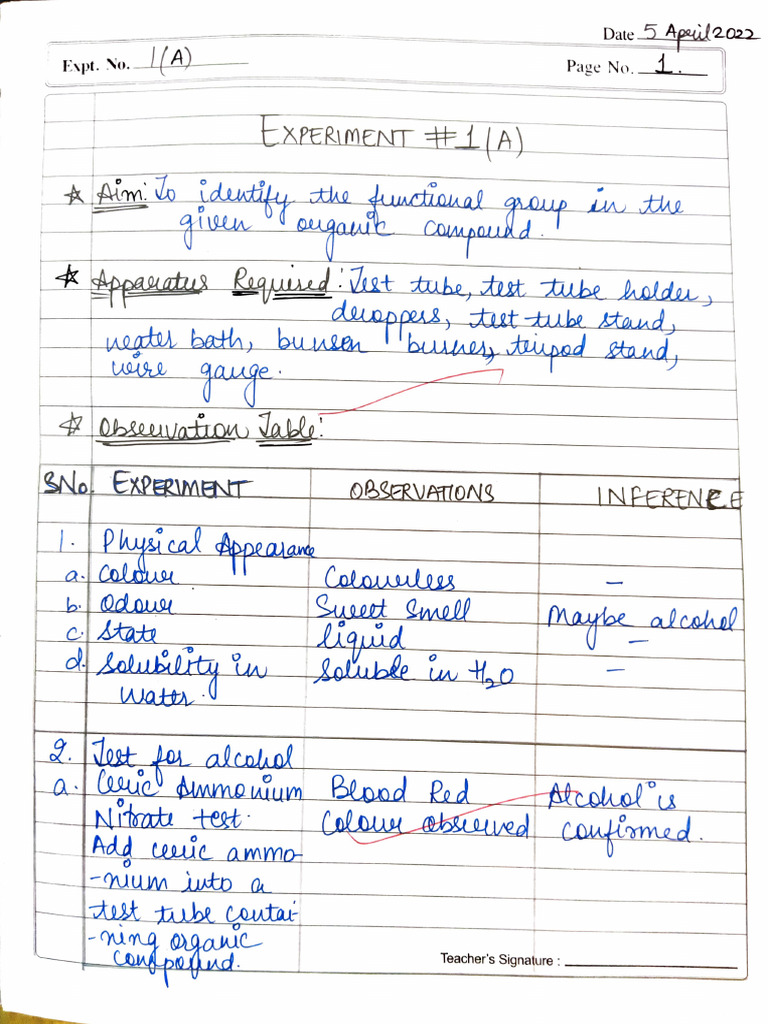 Date 5 April 2022
Expt. No. 1(A)
Page No. 1.
EXPERIMENT #1(A)
☆ Aim: To identify the functional group in the
given organic compound.
☆ Apparatus Required: Test tube, test tube holder,
droppers, test tube stand,
water bath, bunsen burner, tripod stand,
wire gauge.
☆ Observation Table:
SNo. EXPERIMENT OBSERVATIONS INFERENCE
1. Physical Appearance
a. Colour Colourless –
b. Odour Sweet Smell Maybe alcohol
c. State liquid –
d. Solubility in Soluble in H2O –
Water.
2. Test for alcohol
a. Ceric Ammonium Blood Red Alcohol is
Nitrate test. Colour observed confirmed.
Add ceric ammo-
-nium into a
test tube contai-
-ning organic
compound.
Teacher's Signature :